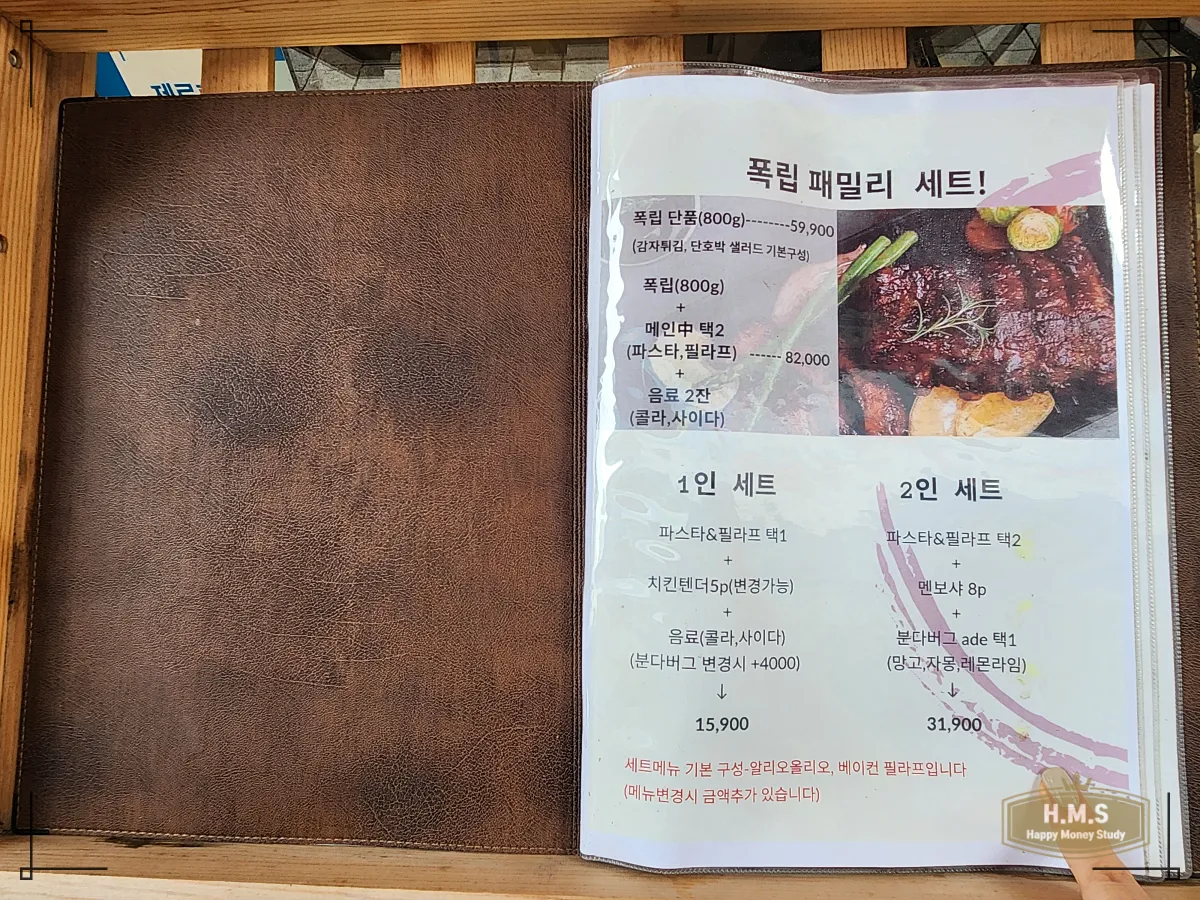 폭립 패밀리 세트!
폭립 단품(800g)--------59,900
(감자튀김, 단호박 샐러드 기본구성)
폭립(800g)
+
메인中 택2
(파스타,필라프) ------ 82,000
+
음료 2잔
(콜라,사이다)
1인 세트
파스타&필라프 택1
+
치킨텐더5p(변경가능)
+
음료(콜라,사이다)
(분다버그 변경시 +4000)
↓
15,900
2인 세트
파스타&필라프 택2
+
멘보샤 8p
+
분다버그 ade 택1
(망고,자몽,레몬라임)
↓
31,900
세트메뉴 기본 구성-알리오올리오, 베이컨 필라프입니다
(메뉴변경시 금액추가 있습니다)
H.M.S
Happy Money Study